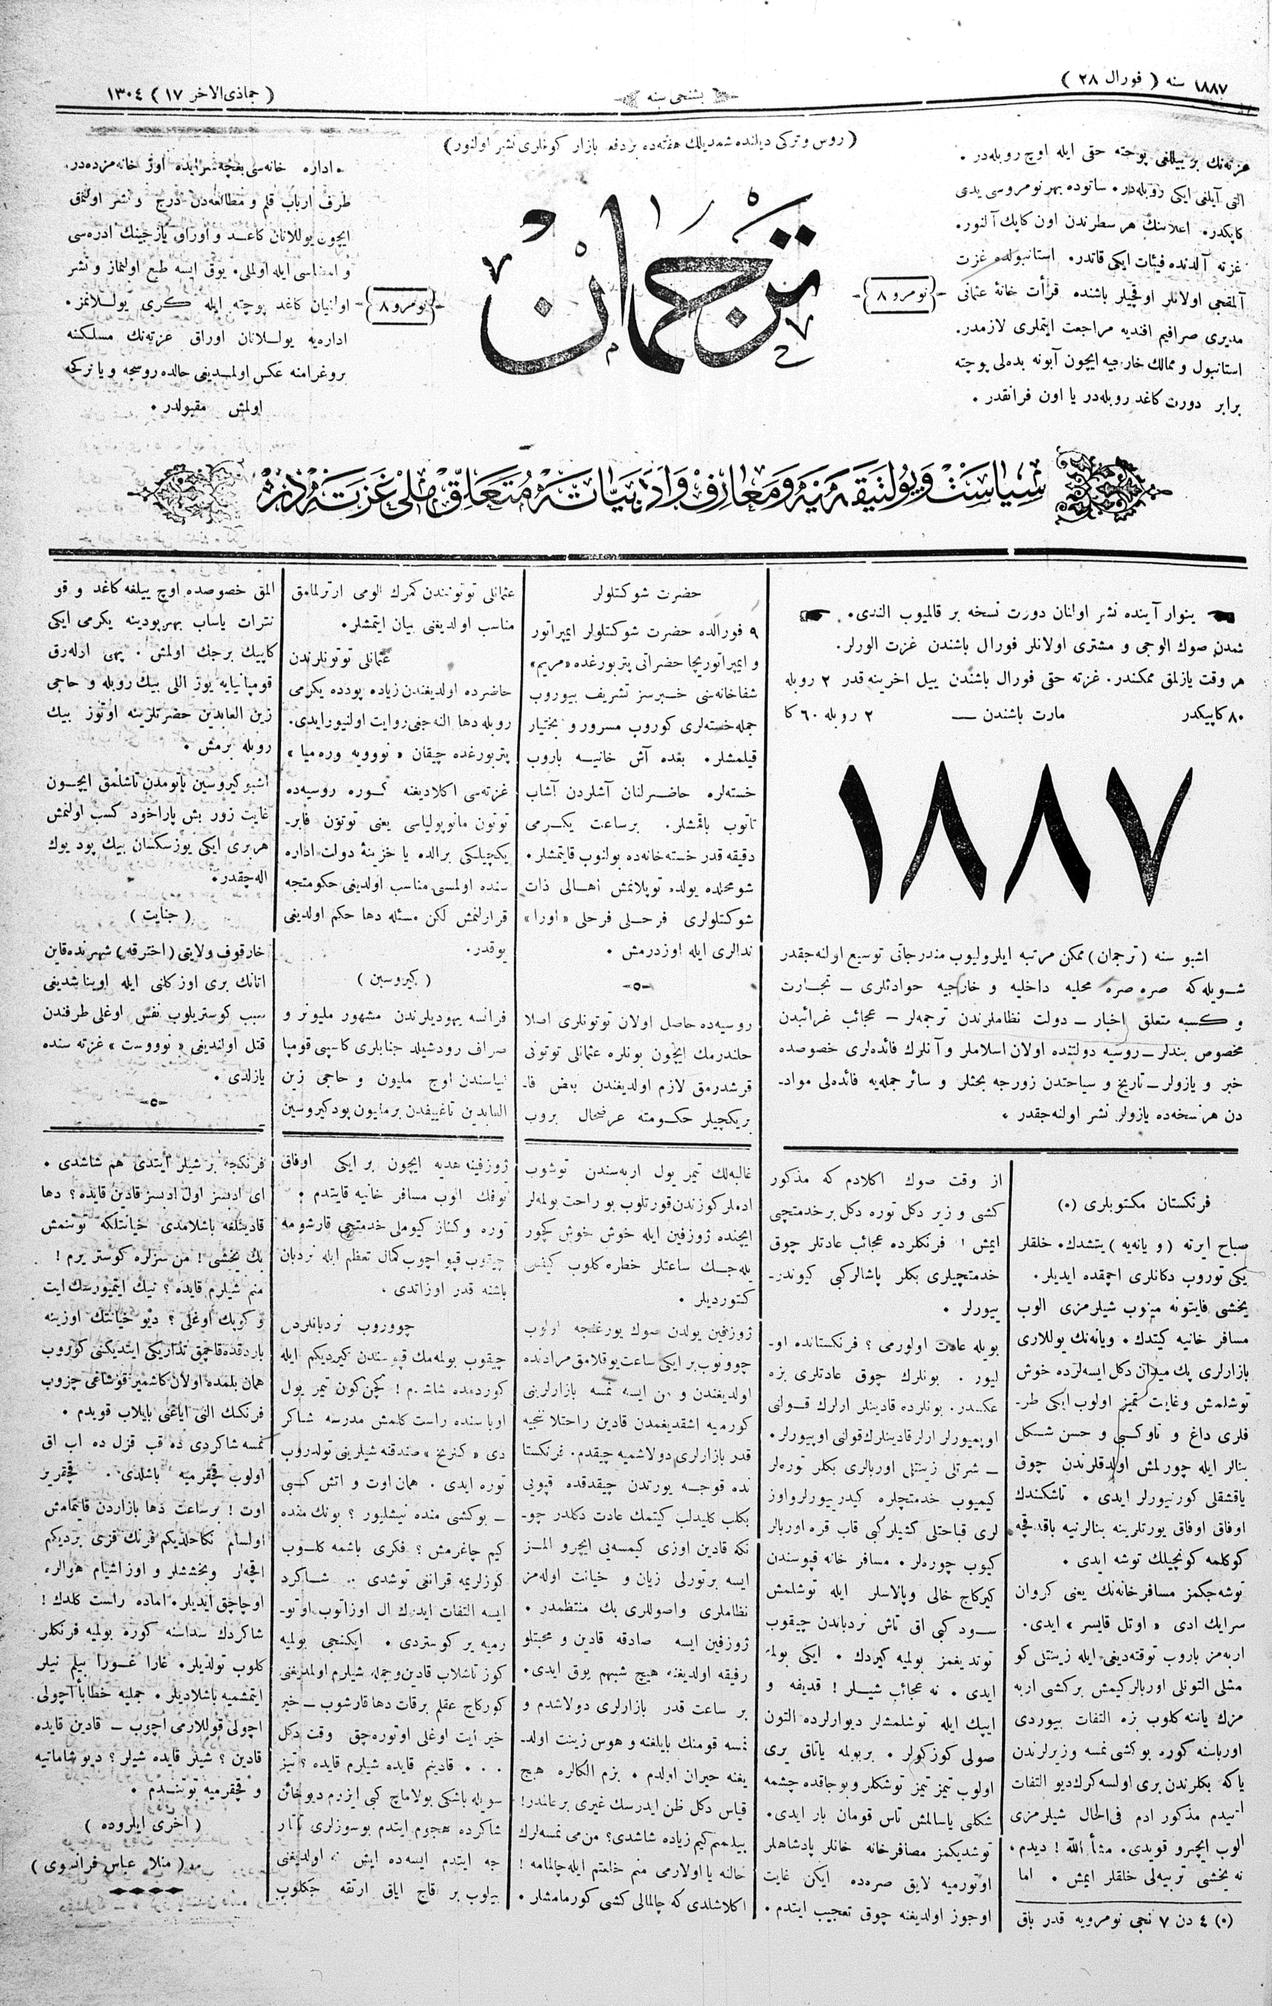 ١٨٨٧ سنه ( فورال ٢٨ )
بشنجی سنه
( جمادی الاخر ١٧ ) ١٣٠٤
( روس و ترکی دیلنده شمدیلك هفته‌ده بر دفعه بازار کونلری نشر اولنور )
غزته‌نك بر ییللغی پوچته حقی ایله اوچ روبله‌در .
التی آیلغی ایکی روبله‌در . ساتوده بهر نومروسی یدی
کاپکدر . اعلاننك هر سطرندن اون کاپك آلنور .
غزته آلدنده فیئات ایکی قاتدر . استانبولده غزت
آلمقجی اولانلر اوقچیلر باشنده قرأت خانۀ عثمانی
مدیری صرافیم افندیه مراجعت ایتملری لازمدر .
استانبول و ممالك خارجیه ایچون آبونه بدلی پوچته
برابر دورت کاغد روبله‌در یا اون فرانقدر .
نومرو ٨
ترجمان
نومرو ٨
اداره خانه‌سی بغچه‌سرایده اوز خانه‌مزده‌در .
طرف ارباب قلم و مطالعه‌دن درج و نشر اولنمق
ایچون یوللانان کاغد و اوراق یازجینك ادره‌سی
و امضاسی ایله اولملی . یوق ایسه طبع اولنماز و نشر
اولنیان کاغد پوچته ایله کری یوللانمز .
اداره‌یه یوللانان اوراق غزته‌نك مسلکنه
بروغرامنه عکس اولمدیغی حالده روسجه و یا ترکی
اولمش مقبولدر .
سیاست و پولتیقه‌یه و معارف و ادبیاته متعلق ملی غزته‌در
ینوار آینده نشر اولنان دورت نسخه بر قالمیوب الندی .
شمدن صوك الوجی و مشتری اولانلر فورال باشندن غزت الورلر .
هر وقت یازلمق ممکندر . غزته حقی فورال باشندن ییل اخرینه قدر ٢ روبله
٨٠ کاپیکدر مارت باشندن — ٢ روبله ٦٠ کا
١٨٨٧
اشبو سنه ( ترجمان ) ممکن مرتبه ایلرولیوب مندرجاتی توسیع اولنه‌جقدر
شویله‌که صره صره محلیه داخلیه و خارجیه حوادثلری — تجارت
و کسبه متعلق اخبار — دولت نظاملرندن ترجمه‌لر — عجائب غرائبدن
مخصوص بندلر — روسیه دولتنده اولان اسلاملر و آنلرك فائده‌لری خصوصده
خبر و یازولر — تاریخ و سیاحتدن زورجه بحثلر و سائر جمله‌یه فائده‌لی مواد-
دن هر نسخه‌ده یازولر نشر اولنه‌جقدر .
حضرت شوکتلولر
٩ فورالده حضرت شوکتلولر ایمپراتور
و ایمپراتوریچا حضراتی پتربورغده « مریم »
شفاخانه‌سی خبرسز تشریف بیوروب
جمله خسته‌لری کوروب مسرور و بختیار
قیلمشلر . بقده آش خانیه باروب
خسته‌لره حاضرلنان آشلردن آشاب
تاتوب باقمشلر . بر ساعت یکرمی
دقیقه قدر خسته خانه‌ده بولنوب قایتمشلر .
شو محلده یولده توپلانمش اهالی ذات
شوکتلولری فرحلی فرحلی « اورا »
ندالری ایله اوزدرمش .
روسیه‌ده حاصل اولان توتونلری اصلا
حلندرمك ایچون بونلره عثمانلی توتونی
قرشدرمق لازم اولدیغندن بعض فا-
بریکچیلر حکومته عرضحال بروب
عثمانلی توتونندن کمرك الومی ارترلمامق
مناسب اولدیغی بیان ایتمشلر .
عثمانلی توتونلرندن
حاضرده اولدیغندن زیاده پودده یکرمی
روبله دها النه‌جغی روایت اولنیور ایدی .
پتربورغده چیقان « نووویه وره‌میا »
غزته‌سی اکلادیغنه کوره روسیه‌ده
توتون مانوپولیاسی یعنی توتون فابر-
یکچیلکی برالده یا خزینۀ دولت اداره
سنده اولمسی مناسب اولدیغی حکومتجه
قرارلنمش لکن مسئله دها حکم اولدیغی
یوقدر .
( کیروسین )
فرانسه یهودیلرندن مشهور ملیونر و
صراف رودشیلد جنابلری کاسپی قومپا
نیاسندن اوچ ملیون و حاجی زین
العابدین تاغییفدن بر ملیون پود کیروسین
المق خصوصده اوچ ییلغه کاغد و قو
نترات یاساب بهر پودینه یکرمی ایکی
کاپیك برجك اولمش . پهی ارله‌رق
قومپانیایه یوز اللی بیك روبله و حاجی
زین العابدین حضرتلرینه اوتوز بیك
روبله برمش .
اشبو کیروسین باتومدن تاشلمق ایچون
غایت زور بش پاراخود کسب اولنمش
هربری ایکی یوز سکسان بیك پود یوك
اله‌جقدر .
( جنایت )
خارقوف ولایتی ( اخترقه ) شهرنده قاین
اتانك بری اوز کلنی ایله اویناشدیغی
سبب کوستریلوب نفس اوغلی طرفندن
قتل اولندیغی « نووست » غزته سنده
یازلدی .
فرنکستان مکتوبلری (٠)
صباح ایرته ( ویانه‌یه ) یتشدك . خلقلر
یکی توروب دکانلری اچمقده ایدیلر .
یخشی فایتونه مینوب شیلرمزی الوب
مسافر خانیه کیتدك . ویانه‌نك یوللاری
بازارلری پك میدان دکل ایسه‌لرده خوش
توشلمش و غایت تمیز اولوب ایکی طر-
فلری داغ و تاو کبی و حسن شکل
بنالر ایله چورلمش اولدقلرندن چوق
یاقشقلی کورنیورلر ایدی . تاشکندك
اوفاق اوفاق یورتلرینه بنالرنیه باقدقچه
کوکلمه کونچیلك توشه ایدی .
توشه‌جکمز مسافرخانه‌نك یعنی کروان
سرایك ادی « اوتل قایسر » ایدی .
اربه‌مز باروب توقته‌دیغی ایله زینتلی کو
مشلی التونلی اوربالر کیمش بر کشی اربه
مزك یاننه کلوب بزه التفات بیوردی
اورباسنه کوره بو کشی نمسه وزیرلرندن
یاکه بکلرندن بری اولسه کرك دیو التفات
ایتیدم مذکور ادم فی‌الحال شیلرمزی
الوب ایچرو قویدی . مشأ الله ! دیدم ،
نه یخشی تربیه‌لی خلقلر ایمش . اما
(٠) ٤ دن ٧ نجی نومرویه قدر باق
از وقت صوك اکلادم که مذکور
کشی وزیر دکل توره دکل بر خدمتچی
ایمش ! فرنکلرده عجائب عادتلر چوق
خدمتچیلری بکلر پاشالر کبی کیوندر-
ییورلر .
بویله عادت اولورمی ؟ فرنکستانده او-
لیور . بونلرك چوق عادتلری بزه
عکسدر . بونلرده قادینلر ارلرك قولنی
اوپمیورلر ارلر قادینلرك قولنی اوپیورلر .
— شرتلی زینتلی اوربالری بکلر توره‌لر
کیمیوب خدمتچلره کیدرییورلر و اوز
لری قباحتلی کشیلر کبی قاب قره اوربالر
کیوب چوره‌لر . مسافر خانه قپوسندن
کیرکاچ خالی و پالاسلر ایله توشلمش
سود کبی اق تاش نردباندن چیقوب
توتدیغمز بولمیه کیردك . ایکی بولمه
ایدی . نه عجائب شیلر ! قدیفه و
ایپك ایله توشلمشلر دیوارلرده التون
صولی کوزکولر . بر بولمه یاتاق یری
اولوب تمیز تمیز توشکلر و بوجاقده چشمه
شکلی یاسالمش تاس قومان بار ایدی .
توشدیکمز مصافرخانه خانلر پادشاهلر
اوتورمیه لایق صره‌ده ایکن غایت
اوجوز اولدیغنه چوق تعجیب ایتدم .
غالبه‌لك تیمر یول اربه‌سندن توشوب
ادملر کوزندن قورتلوب بو راحت بولمه‌لر
ایچنده ژوزفین ایله خوش خوش کچور
یله‌جك ساعتلر خطره کلوب کیفمی
کتوردیلر .
ژوزفین یولدن صوك یورغنجه اولوب
چوونوب بر ایکی ساعت یوقلامق مرادنده
اولدیغندن و من ایسه نمسه بازارلرینی
کورمیه اشقدیغمدن قادین راحتلانیجیه
قدر بازارلری دولاشمیه چیقدم . فرنکستا
نده قوجه یورتدن چیقدقده قپویی
بکلب کلیدلب کیتمك عادت دکلدر چو-
نکه قادین اوزی کیمسه‌یی ایچرو المز
ایسه برتورلی زیان و خیانت اوله‌مز
نظاملری و اصوللری پك منتظمدر .
ژوزفین ایسه صادقه قادین و محبتلو
رفیقه اولدیغنه هیچ شبهم یوق ایدی .
بر ساعت قدر بازارلری دولاشدم و
نمسه قومنك بایلغنه و هوس زینت اولد-
یغنه حیران اولدم . بزم الکالره هیچ
قیاس دکل ظن ایدرسك غیری بر عالمدر !
بیلمنم کیم زیاده شاشدی ؟ من می نمسه‌لرك
حالنه یا اولارمی منم خلعتم ایله چالمامه !
اکلاشلدی که چالمالی کشی کورمامشلر .
ژوزفینه هدیه ایچون بر ایکی اوفاق
توفك الوب مسافر خانیه قایتدم .
توره و کناز کیوملی خدمتچی قارشومه
چیقوب قپو اچوب کمال تعظم ایله نردبان
باشنه قدر اوزاتدی .
چووروب نردبانلردن
چیقوب بولمه‌مك قپوسندن کیردیکم ایله
کورده‌مده شاشدم ! کچن کون تیمر یول
اوباسنده راست کلمش مدرسه شاکر
دی « کنریخ » صندقنه شیلرینی تولدروب
توره ایدی . همان اوت و اتش کبی
— بو کشی منده نیشلیور ؟ بونك منده
کیم چاغرمش ؟ فکری باشمه کلوب
کوزلریمه قرانغی توشدی .. شاکرد
ایسه التفات ایدرك ال اوزاتوب اوتو-
رمیه یر کوستردی . ایکنجی بولمیه
کوز تاشلاب قادین و جمله شیلرم اولمدیغنی
کورکاچ عقلم برقات دها قارشوب — خیر
خیر ایت اوغلی اوتوره‌جق وقت دکل
... قادینم قایده شیلرم قایده ؟ تیز
سویله باشکی بولاماچ کبی ایزرم دیو خائن
شاکرده هجوم ایتدم بو سوزلری تاتار
جه ایتدم ایسه‌ده ایش نه اولدیغنی
بیلوب بر قاچ ایاق ارتقه چکلوب
فرنکچه بر شیلر ایتدی هم شاشدی .
ای ادبسز اول ادبسز قادین قایده ؟ دها
قادینلغه باشلامدی خیانتلکه توتنمش
پك یخشی ! من سزلره کوستر یرم !
منم شیلرم قایده ؟ نیك ایتمیورسك ایت
و کوپك اوغلی ؟ دیو خیانتك اوزینه
یاردقده قاچمق تدارکی ایتدیکنی کوروب
همان بلمده اولان کاشمیر قوشاغی چزوب
فرنکك التی ایاغنی بایلاب قویدم .
نمسه شاکردی ده قب قزل ده اب اق
اولوب قچقرمیه باشلدی . قچقریر
اوت ! بر ساعت دها بازاردن قایتمامش
اولسام نکاحلدیکم فرنك قزی بردیکم
اقچه‌لر و بخششلر و اوز اشیام هوالره
اوچاچق ایدیلر . اماده راست کلدك !
شاکردك سداسنه کوره بولمیه فرنکلر
کلوب تولدیلر . غارا غورا بیلم نیلر
ایتمشمیه باشلادیلر . جمله‌یه خطابا اچولی
اچولی قوللارمی اچوب — قادین قایده
قادین ؟ شیلر قایده شیلر ؟ دیو شاماتیه
و قچقرمیه توتندم .
( اخری ایلروده )
( منلا عباس فرانسوی )